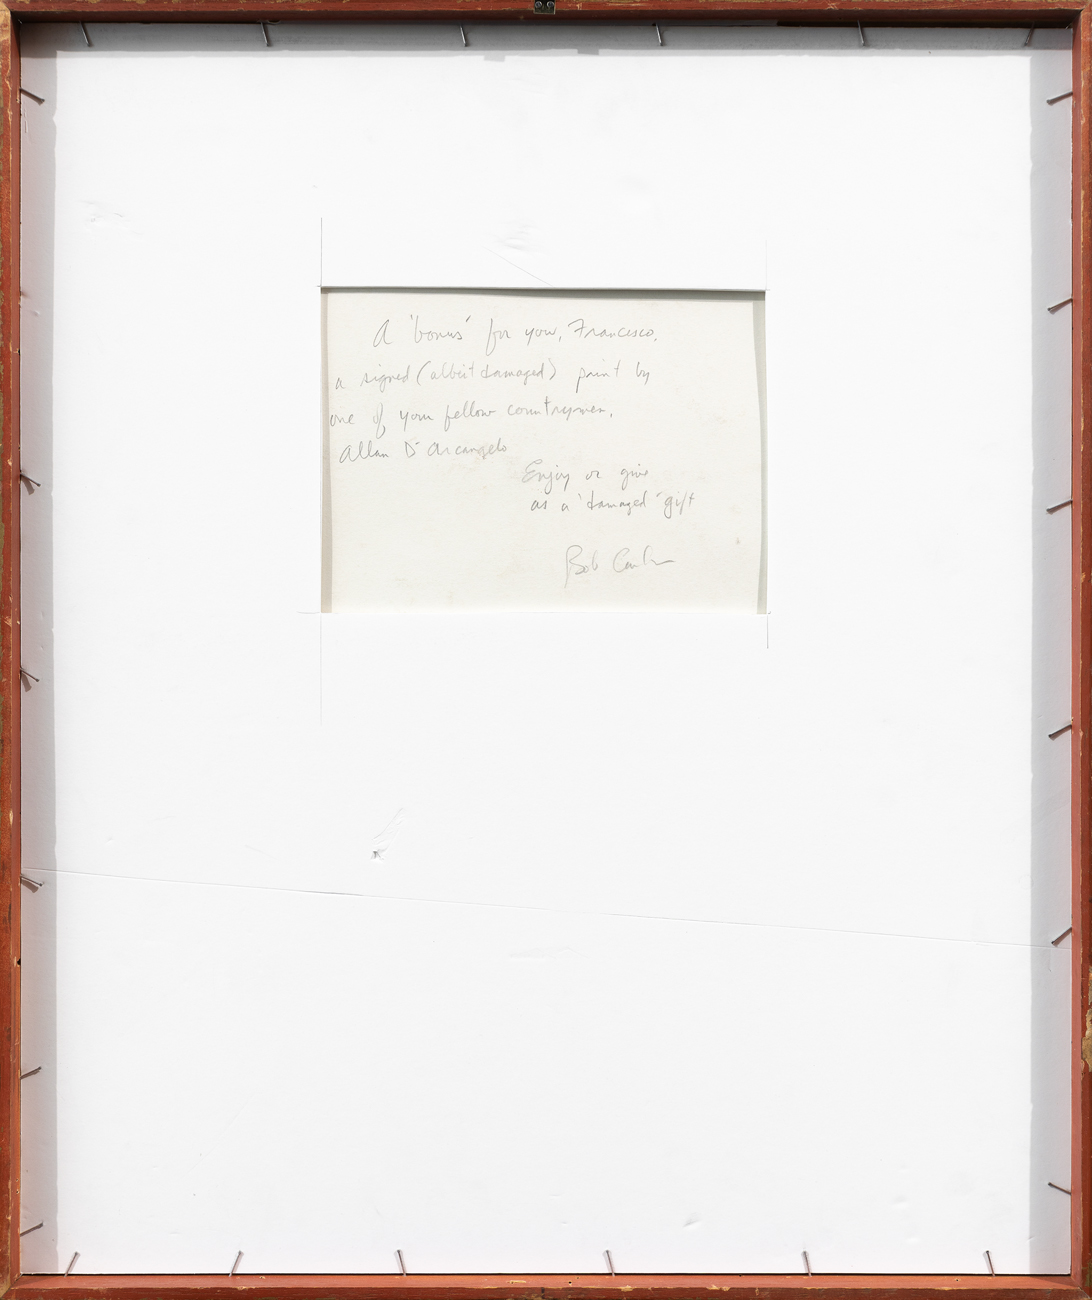 A 'bonus' for you, Francesco,
a signed (albeit damaged) paint by
one of your fellow countrymen,
Allan D'Arcangelo
Enjoy or give
as a 'damaged' gift
Bob